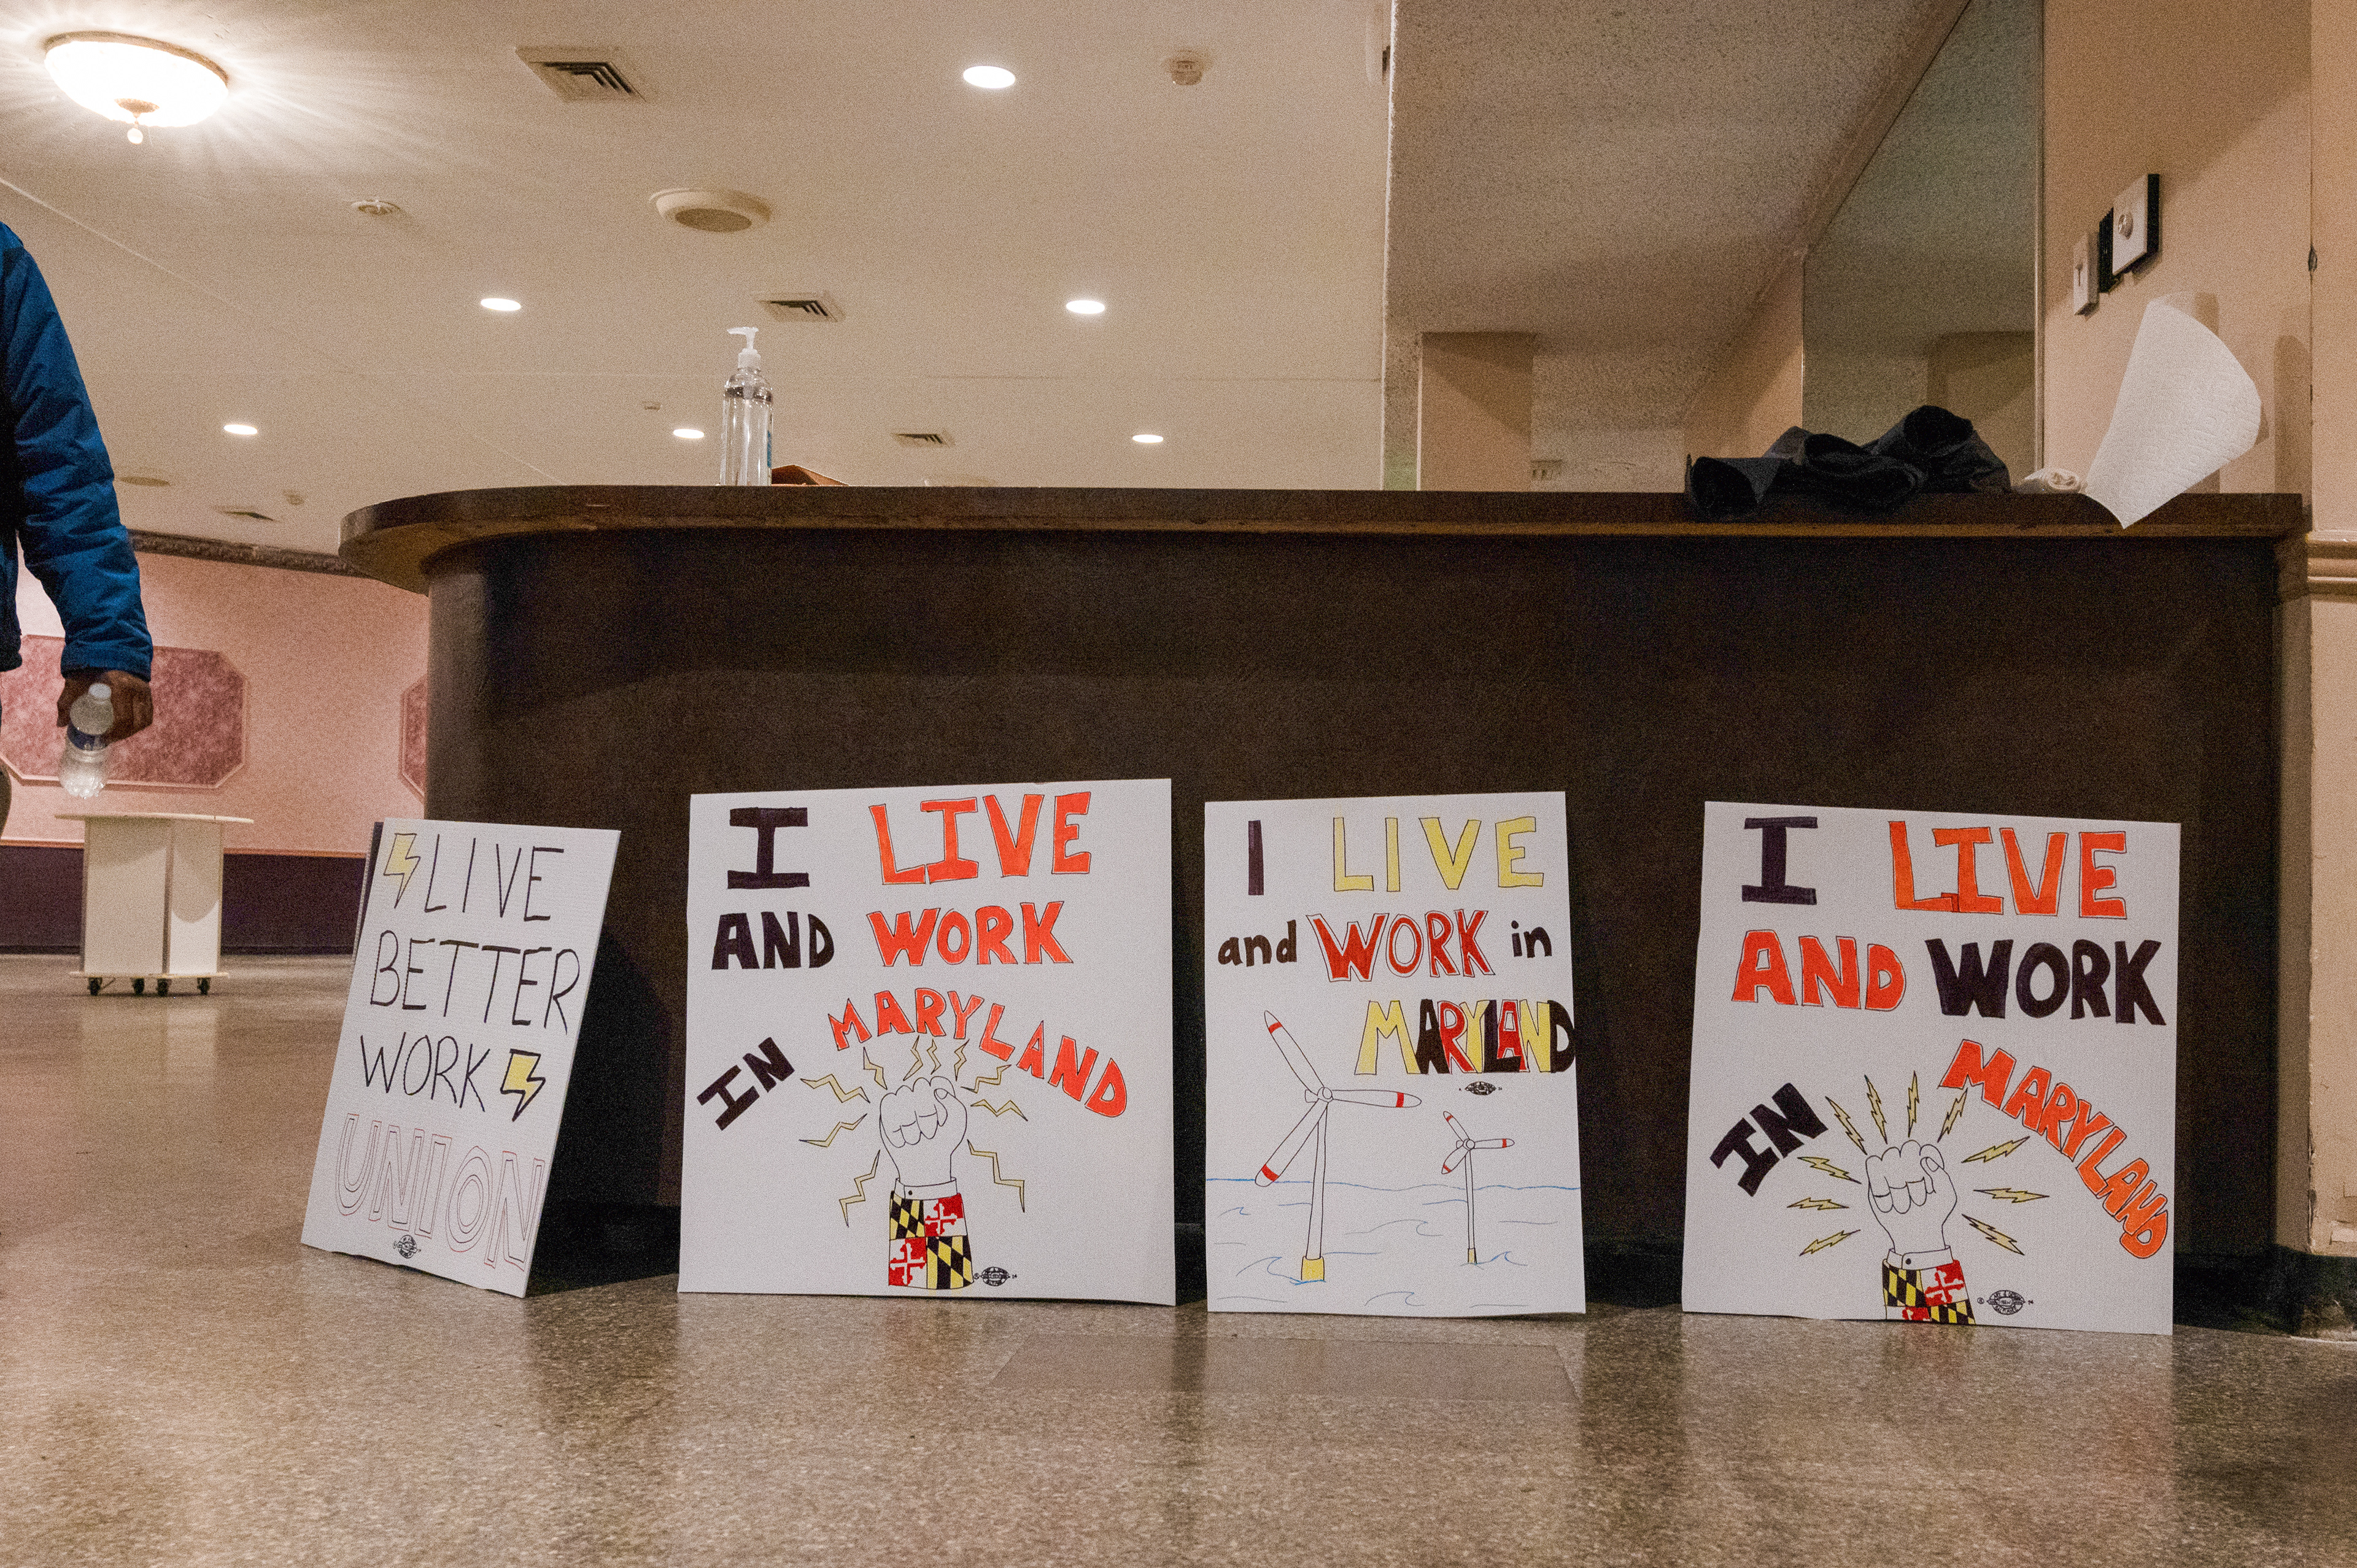 LIVE
BETTER
WORK
UNION
I LIVE
AND WORK
IN MARYLAND
I LIVE
and WORK in
MARYLAND
I LIVE
AND WORK
IN MARYLAND